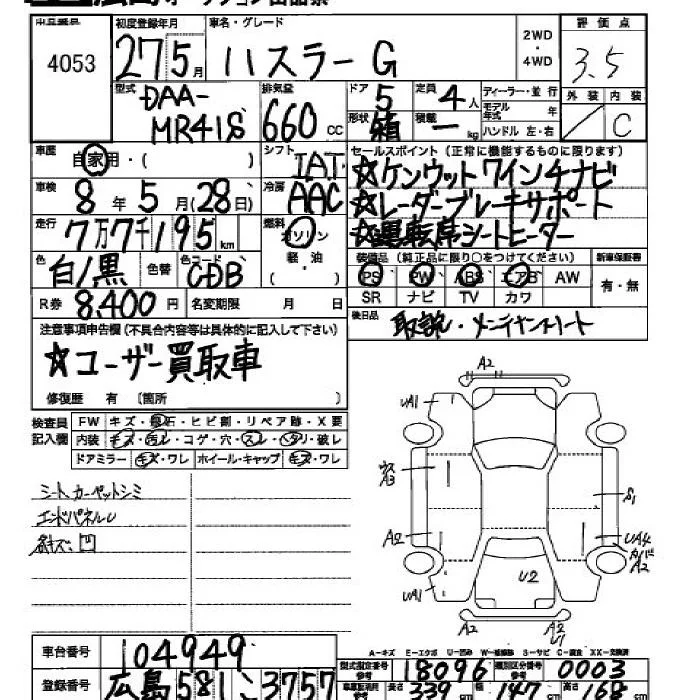 出品番号 4053
初度登録年月 27 5月
車名・グレード ハスラー G
2WD・4WD
評価点 3.5
外装 / 内装 C
型式 DAA-MR41S
排気量 660 cc
ドア 5 定員 4人
形状 箱 積載 — kg
ディーラー・並行
モデル年式 年
ハンドル 左・右
車歴 自家用・( )
シフト IAT
車検 8年 5月(28日)
冷房 AAC
走行 7万7千195 km
燃料 ガソリン 軽油 ( )
色 白/黒 色替 色コード CDB
R券 8,400円 名変期限 月 日
セールスポイント(正常に機能するものに限ります)
☆ケンウッド7インチナビ
☆レーダーブレーキサポート
☆運転席シートヒーター
装備品(純正品に限り○をつけてください) 新車保証書
PS PW ABS エアB AW 有・無
SR ナビ TV カワ
後日品 取説・メンテナンスノート
注意事項申告欄(不具合内容等は具体的に記入して下さい)
☆ユーザー買取車
修復歴 有 〔箇所 〕
検査員記入欄
FW キズ・飛石・ヒビ割・リペア跡・X要
内装 キズ・汚レ・コゲ・穴・スレ・ヘタリ・破レ
ドアミラー キズ・ワレ ホイール・キャップ キズ・ワレ
シート、カーペットシミ
エンドパネルU
斜キズ、凹
A2
UA1
A3
A2
UA1
S1
UA4
A2
U2
A2 A2
U1
A-キズ E-エクボ U-凹み W-補修跡 S-サビ C-腐食 XX-交換済
車台番号 104949
登録番号 広島 581 こ 3757
型式指定番号 18096 類別区分番号 0003
長さ 339 cm 幅 147 cm 高さ